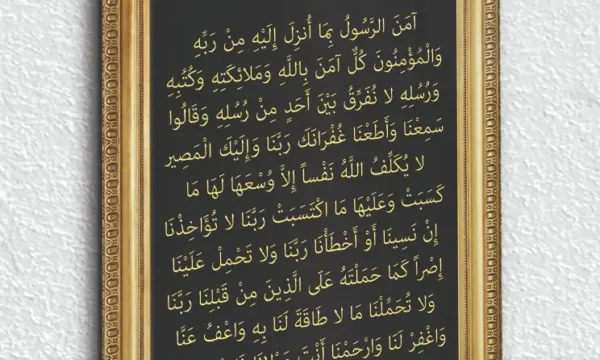 آمَنَ الرَّسُولُ بِمَا أُنزِلَ إِلَيْهِ مِنْ رَبِّهِ
وَالْمُؤْمِنُونَ كُلٌّ آمَنَ بِاللَّهِ وَمَلائِكَتِهِ وَكُتُبِهِ
وَرُسُلِهِ لا نُفَرِّقُ بَيْنَ أَحَدٍ مِنْ رُسُلِهِ وَقَالُوا
سَمِعْنَا وَأَطَعْنَا غُفْرَانَكَ رَبَّنَا وَإِلَيْكَ الْمَصِير
لا يُكَلِّفُ اللَّهُ نَفْساً إِلاَّ وُسْعَهَا لَهَا مَا
كَسَبَتْ وَعَلَيْهَا مَا اكْتَسَبَتْ رَبَّنَا لا تُؤَاخِذْنَا
إِنْ نَسِينَا أَوْ أَخْطَأْنَا رَبَّنَا وَلا تَحْمِلْ عَلَيْنَا
إِصْراً كَمَا حَمَلْتَهُ عَلَى الَّذِينَ مِنْ قَبْلِنَا رَبَّنَا
وَلا تُحَمِّلْنَا مَا لا طَاقَةَ لَنَا بِهِ وَاعْفُ عَنَّا
وَاغْفِرْ لَنَا وَارْحَمْنَا أَنْتَ